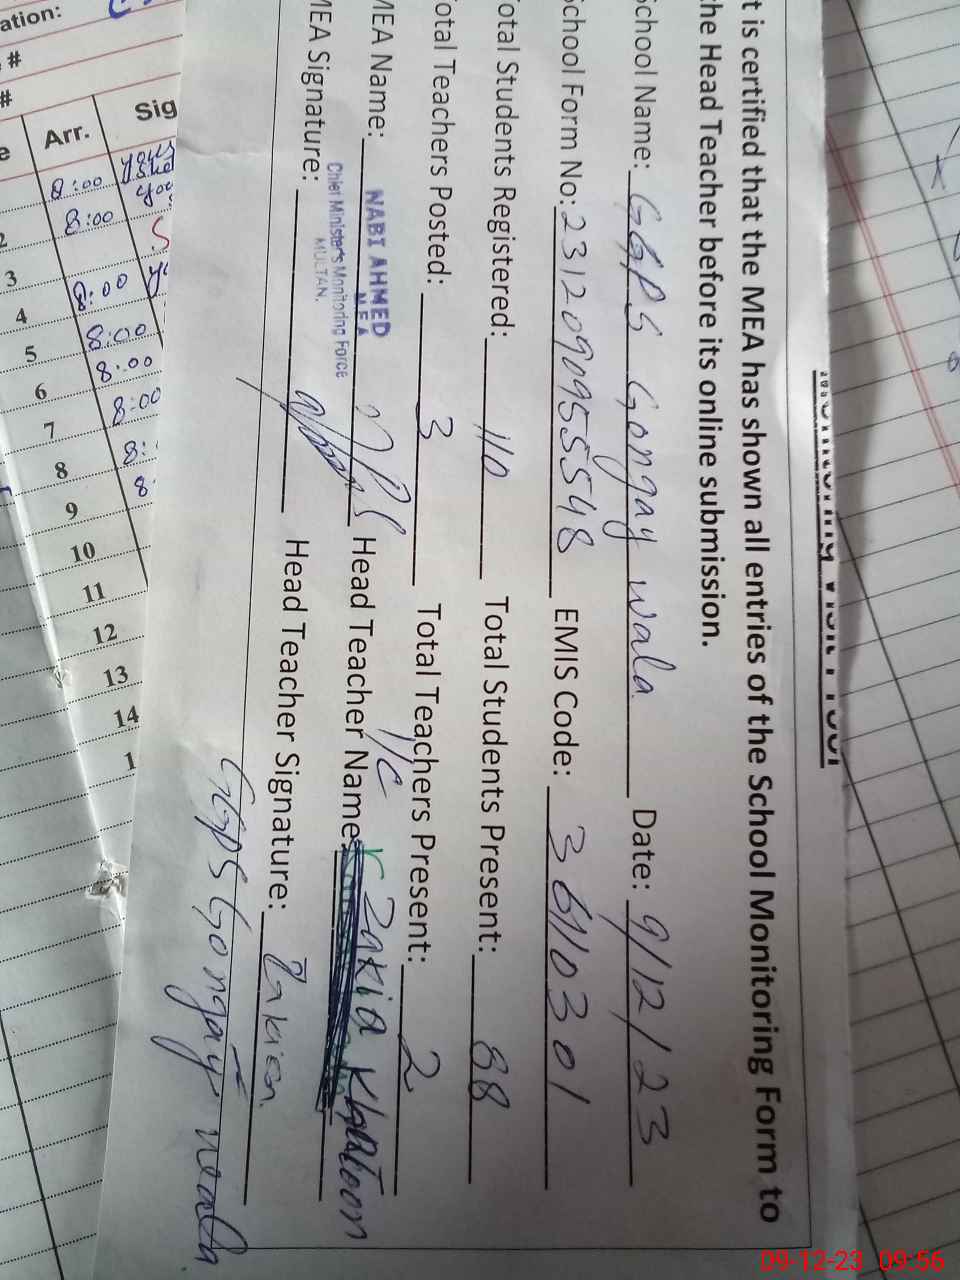 Monitoring Visit Proof
t is certified that the MEA has shown all entries of the School Monitoring Form to
he Head Teacher before its online submission.
School Name: GGPS Gongay wala Date: 9/12/23
School Form No: 23120909555548 EMIS Code: 36110301
Total Students Registered: 110 Total Students Present: 88
Total Teachers Posted: 3 Total Teachers Present: 2
MEA Name: NABI AHMED Head Teacher Name: I/C Zakia Khatoon
MEA
Chief Minister's Monitoring Force
MULTAN.
MEA Signature: Head Teacher Signature: Zakia
GGPS Gongay wala
ation:
#
#
e Arr. Sig
8:00
2 8:00
3 8:00
4 8:00
5 8:00
6 8:00
7 8:
8 8:
9
10
11
12
13
14
1
09-12-23 09:56